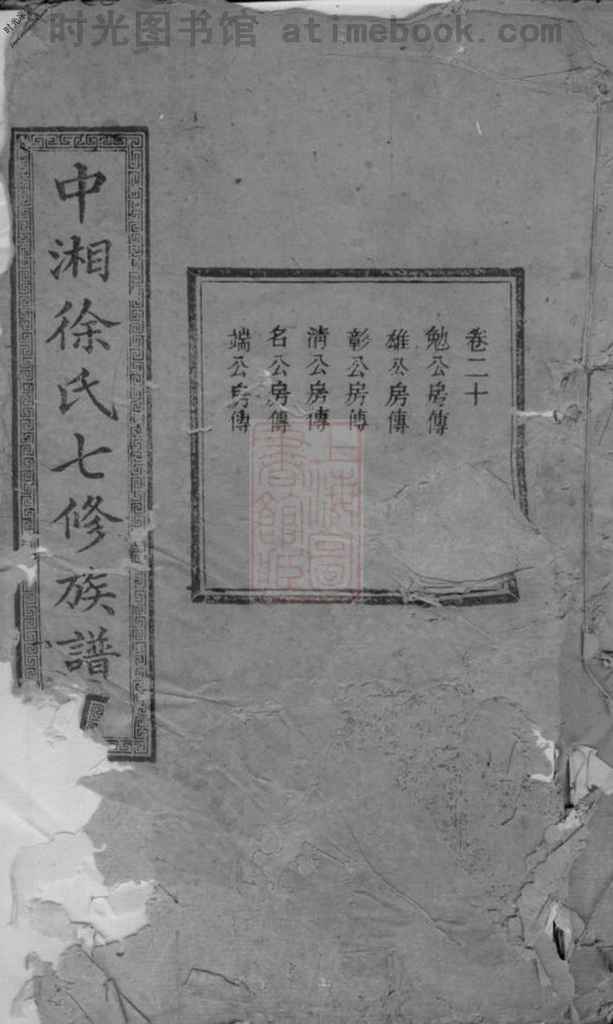 时光图书馆 atimebook.com
中湘徐氏七修族譜
卷二十
勉公房傳
雄公房傳
彰公房傳
清公房傳
名公房傳
端公房傳